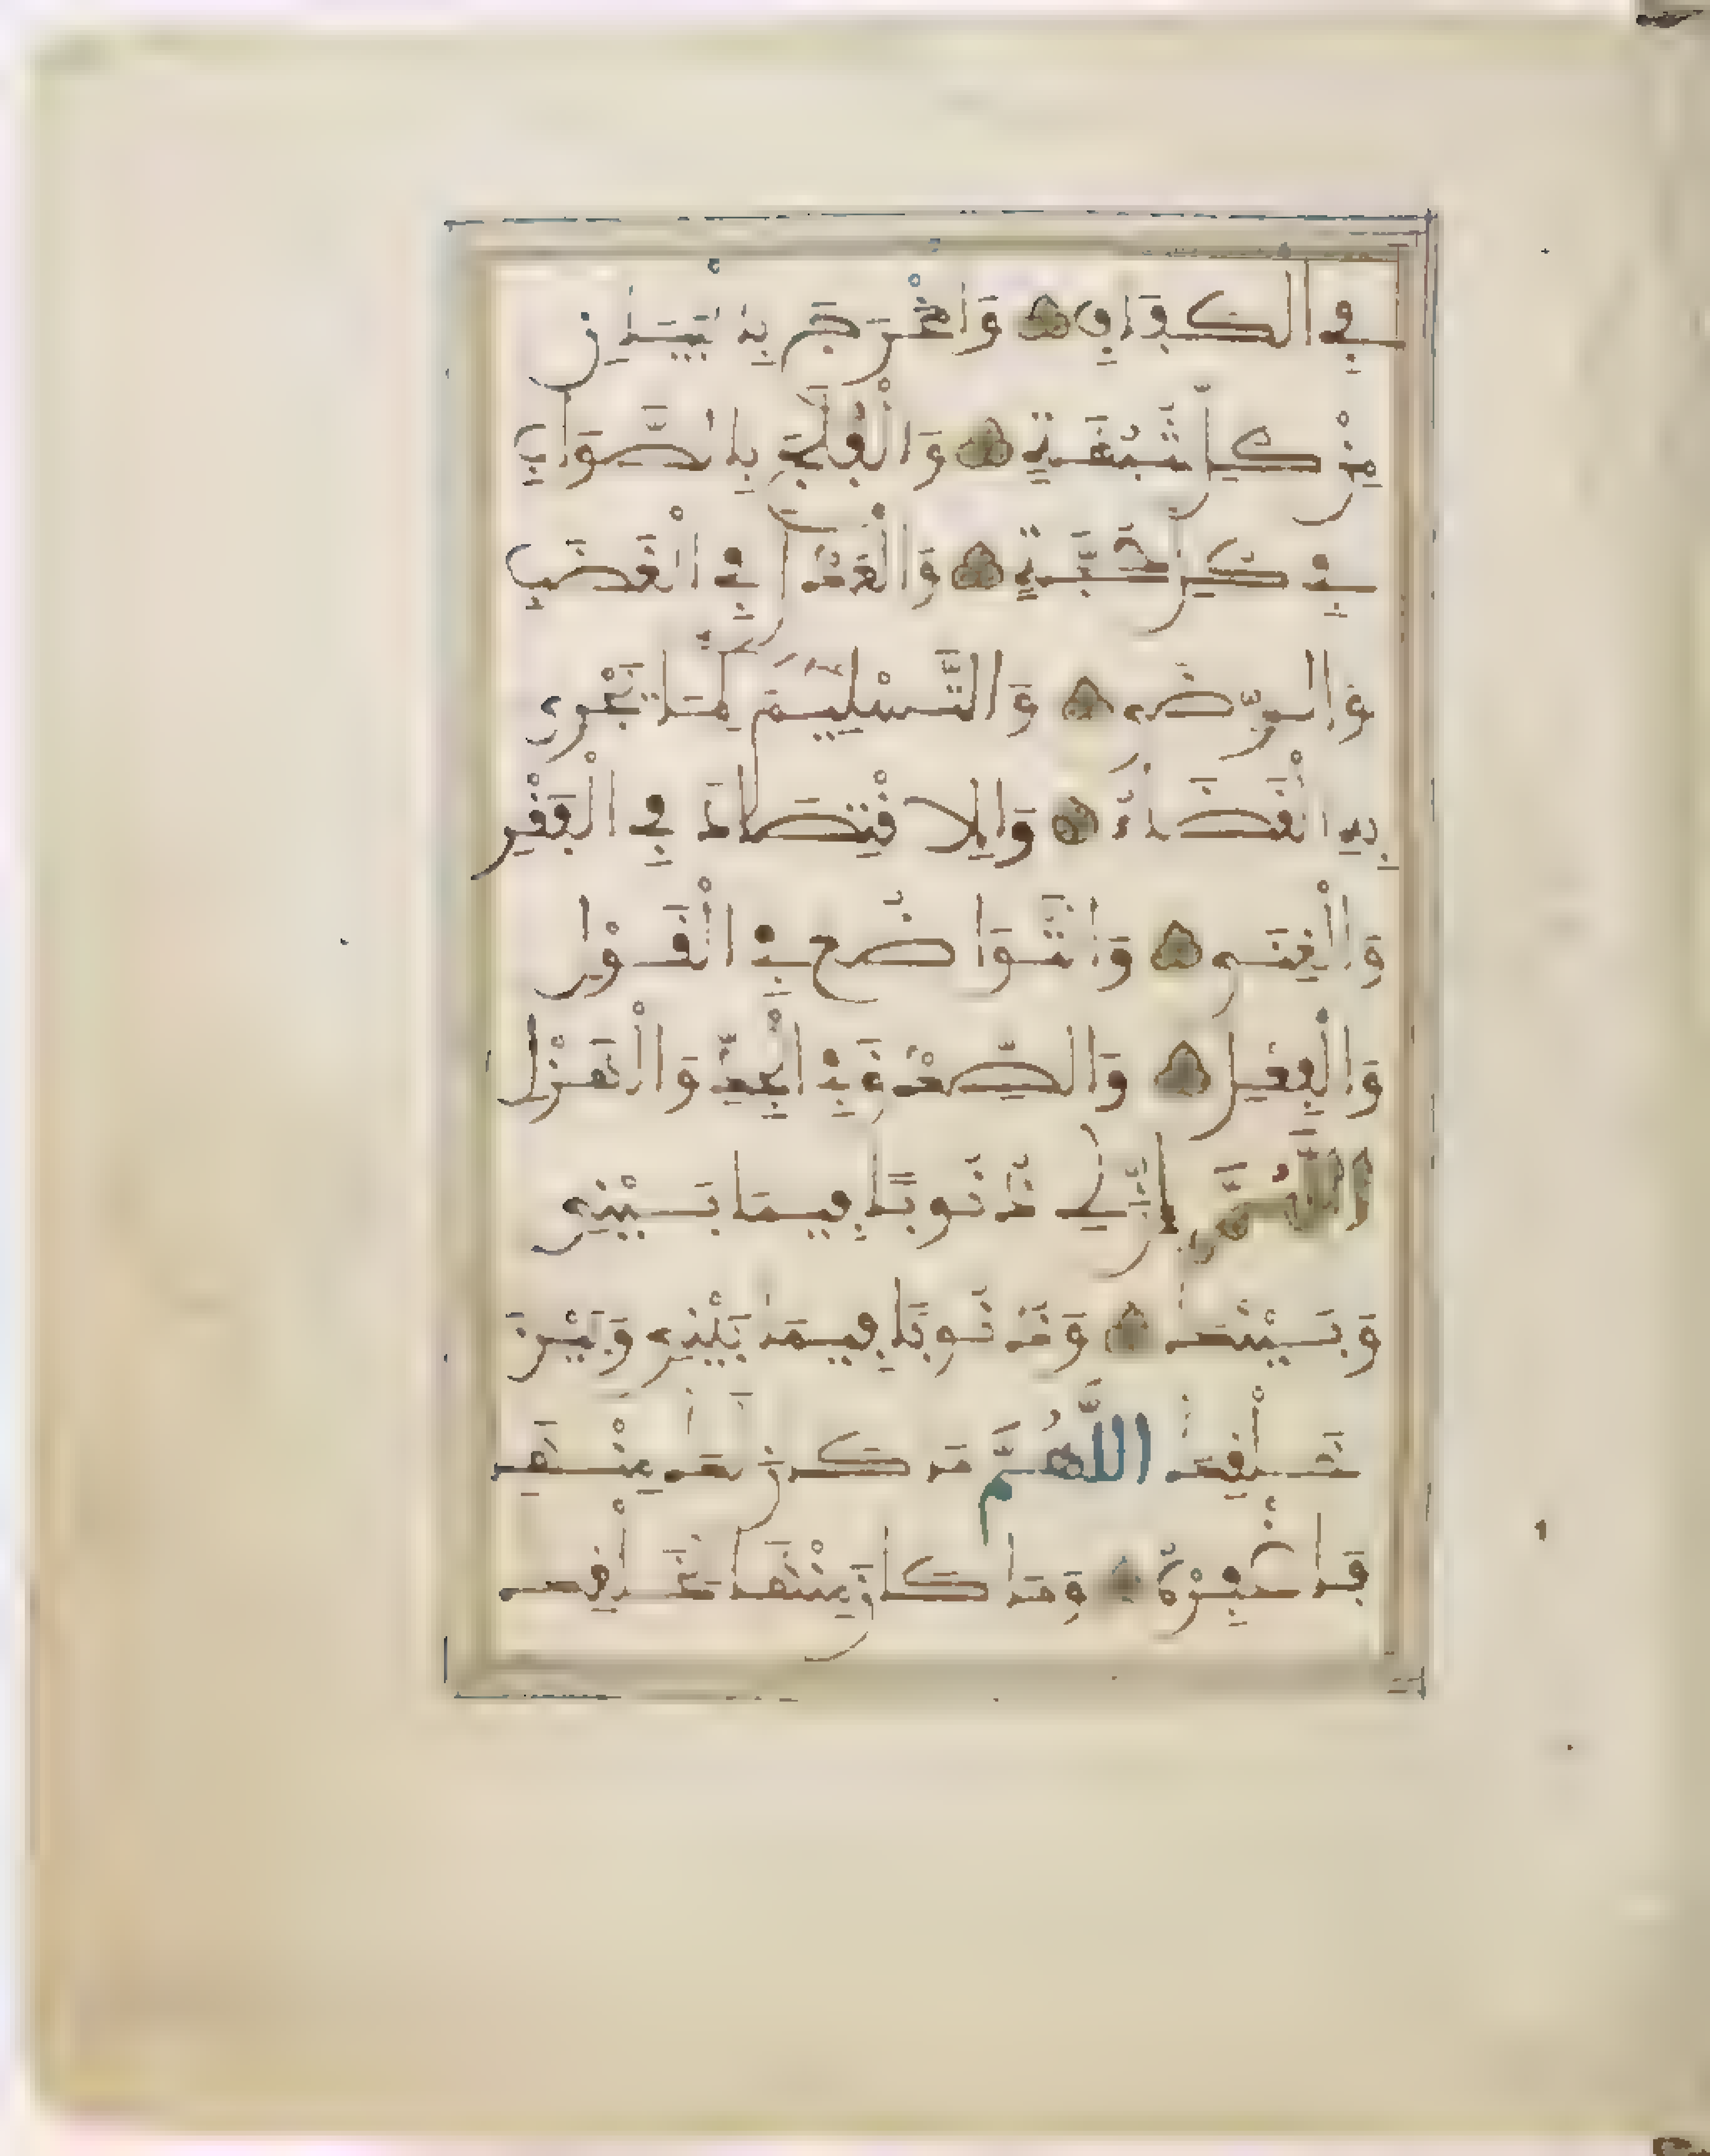 فِي الْكَفَافِ وَاخْرُجْ بِالْبَيَانِ
مِنْ كُلِّ شُبْهَةٍ وَالْفَلْجَ بِالصَّوَابِ
فِي كُلِّ حُجَّةٍ وَالْعَدْلَ فِي الْغَضَبِ
وَالرِّضَى وَالتَّسْلِيمَ لِمَا يَجْرِي
بِهِ الْقَضَاءُ وَالِاقْتِصَادَ فِي الْفَقْرِ
وَالْغِنَى وَالتَّوَاضُعَ فِي الْقَوْلِ
وَالْفِعْلِ وَالصِّدْقَ فِي الْجِدِّ وَالْهَزْلِ
اللَّهُمَّ إِنَّ لِي ذُنُوبًا فِيمَا بَيْنِي
وَبَيْنَكَ وَذُنُوبًا فِيمَا بَيْنِي وَبَيْنَ
خَلْقِكَ اللَّهُمَّ مَا كَانَ لَكَ مِنْهَا
فَاغْفِرْهُ وَمَا كَانَ مِنْهَا لِخَلْقِكَ